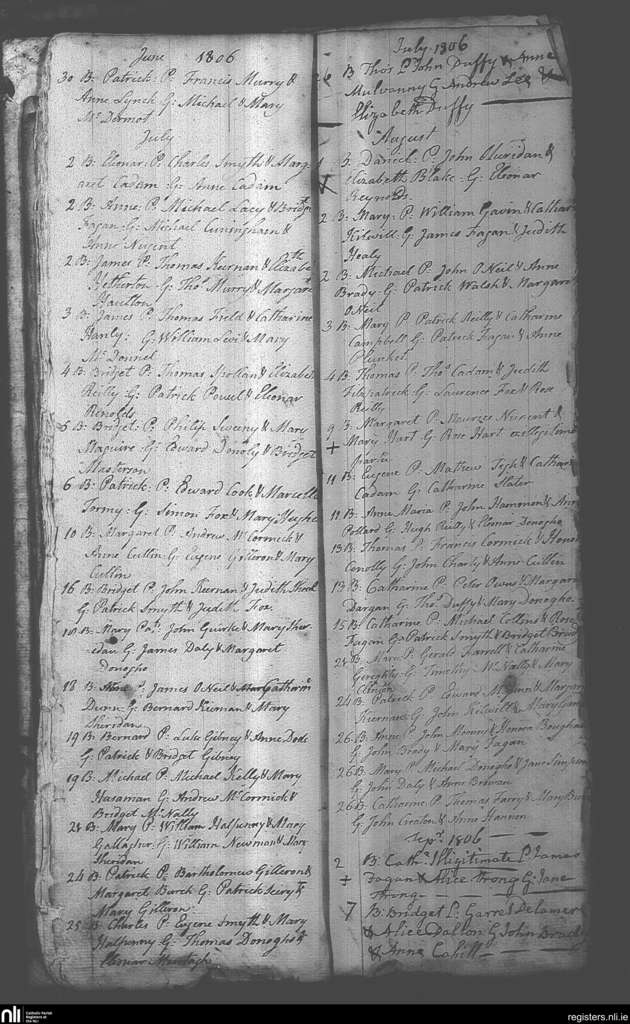 June 1806
30 B. Patrick P. Francis Murry &
Anne Lynch G. Michael & Mary
McDermot
July
2 B: Elonar P. Charles Smyth & Marg
aret Cadam G: Anne Cadam
2 B: Anne P. Michael Lacy & Bridget
Fagan G: Michael Cuningham &
Anne Nugent
2 B: James P. Thomas Keernan & Elizabeth
Hetherton G: Thos Murry & Margaret
3 B: James P. Thomas Field & Catharine
Hanly: G: William Levi & Mary
McDonnel
4 B: Bridget P: Thomas & Elizabeth
Reilly G: Patrick Powel & Elonar
Renolds
5 B: Bridget: P: Philip Sweeny & Mary
Maguire G: Edward & Bridget
Masterson
6 B: Patrick: P: Edward Cook & Marcella
Tormy: G: Simon Fox & Mary
10 B: Margaret P. Andrew McCormick &
Anne Cullin G: Eugene Gilleron & Mary
Cullin
16 B: Bridget P. John Keernan & Judith
G. Patrick Smyth & Judith Fox
18 B: Mary P. John Guirke & Mary Sher
idan G: James Daly & Margaret
Donogho
18 B. P. James ONeil & Catharine
Dunn G: Bernard Kiernan & Mary
Sheridan
19 B: Bernard P: Luke Gibney & Anne
G: Patrick & Bridget Gibney
19 B: Michael P. Michael Kelly & Mary
G: Andrew McCormick &
Bridget McNally
24 B. Mary P. William Halfpenny & Mary
Gallagher G: William Newman & Mary
Sheridan
24 B. Patrick P. Bartholomeus Gilleron &
Margaret Burck G: Patrick &
Mary Gilleron
25 B. Charles P. Eugene Smyth & Mary
Halfpenny G: Thomas Donogho &
July 1806
26 B Thos P. John Duffy & Anne
Mulvanny G Andrew Lee &
Elizabeth Duffy
August
B. Daniel: P: John Sheridan &
Elizabeth Blake: G: Elonar
Reynolds
2 B: Mary: P. William Gavin & Cathar
Kilwill G: James Fagan & Judith
Healy
2 B. Michael P. John ONeil & Anne
Brady: G: Patrick Walsh & Margaret
ONeil
3 B. Mary P. Patrick Reilly & Catharine
Campbell G. Patrick Fagan & Anne
Plunket
4 B. Thomas P. Thos Cadam & Judith
Fitzpatrick G: Laurence Fox & Rose
Reilly
9 B. Margaret P. Nugent &
Mary Hart G. Rose Hart
11 B: Eugene P. Mathew & Cathar
Cadam G: Catharine Slater
11 B. Anne Maria P. John Hammon & Anne
Pollard G. Hugh Reilly & Elonar Donogho
13 B: Thomas P. Francis Cormick & Honor
Conolly G: John Charly & Anne Cullen
13 B: Catharine P. Peter Owns & Margaret
Dargan G: Thos Duffy & Mary Donogho
15 B: Catharine P. Michael Collins & Rose
Fagan G: Patrick Smyth & Bridget Brady
24 B. Mary P. Gerald Farrell & Catharine
Geraghty G. Timothy McNally & Mary
24 B. Patrick P. Edward & Margaret
Kiernan G: John & Mary
26: B: Anne P. John & Honora
G. John Brady & Mary Fagan
26 B. Mary P. Michael Donogho & Jane Simpson
G John Daly & Anne
26 B. Catharine P. Thomas Farry & Mary
G. John Creaton & Anne Hannon
Sept. 1806
2 B. Cath. Illigitimate P. James
Fagan & Alice Strong G. Jane
Strong
7 B: Bridget P: Garret Delamer
& Alice Dalton G John Brady
& Anne Cahill
nli
Catholic Parish
Registers at
the NLI
registers.nli.ie